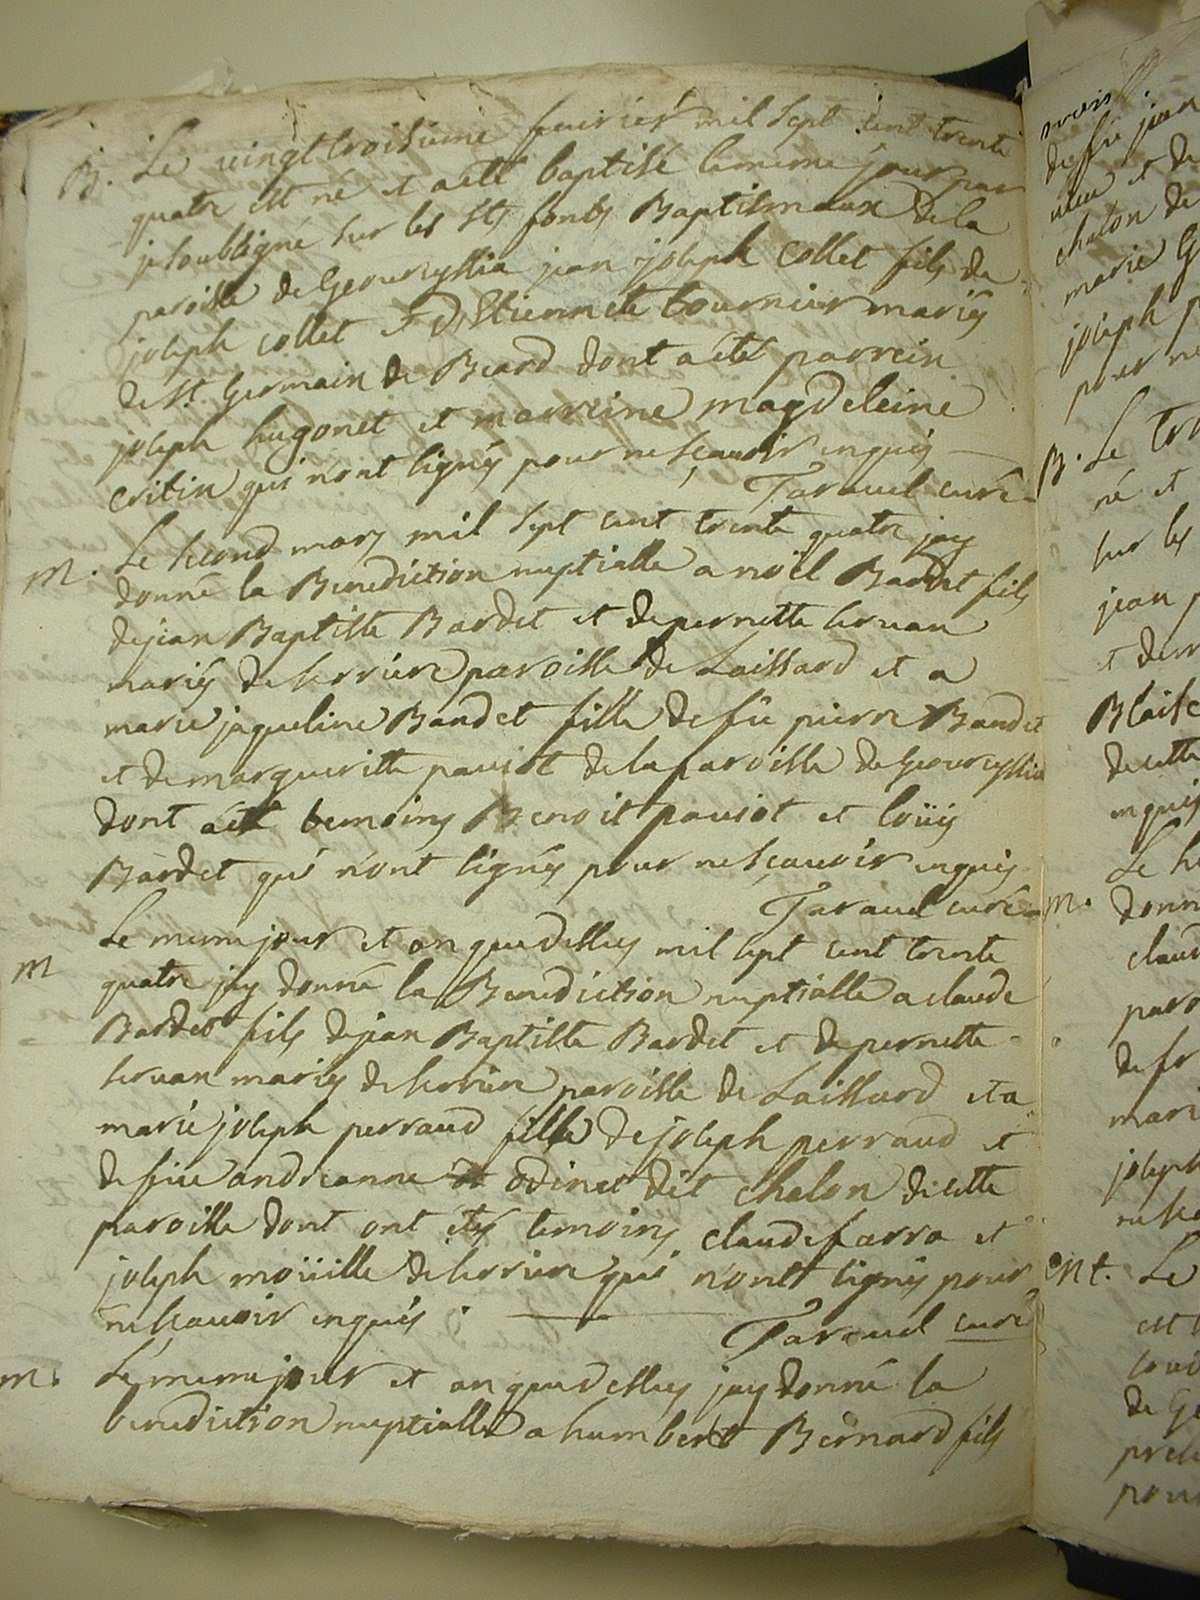 B. Le vingt troisieme feurier mil sept cent trente
quatre est né et a etté baptisé le meme jour par
je soubsigné sur les Sts fonds Baptismaux de la
paroisse de Geoureyssia jean joseph collet fils de
joseph collet et d'Etiennete tournier mariés
de St. Germain de Beard dont a étés parrein
joseph hugonet et marreine magdeleine
critin qui n'ont signés pour ne sçavoir enquis
Taravel curé
m. Le second mars mil sept cent trente quatre jay
donné la Benediction nuptialle a noël Bardet fils
de jean Baptiste Bardet et de pernette servan
mariés de serriere paroisse de Laissard et a
marie jaqueline Bandet fille de fû pierre Bandet
et de margueritte paviot de la paroisse de Geoureyssia
dont été temoins Benoit paviot et loüis
Bardet qui n'ont signés pour ne sçavoir enquis
Taravel curé
m Le meme jour et an que dessus mil sept cent trente
quatre jay donné la Benediction nuptialle a claude
Bardet fils de jean Baptiste Bardet et de pernette
servan mariés de serriere paroisse de Laissard et a
marie joseph perraud fille de joseph perraud et
de füe andreanne odinet dit chalon de cette
paroisse dont ont étés temoins claude farra et
joseph moüille de serriere qui n'ont signés pour
ne scavoir enquis .
Taravel curé
m. Le meme jour et an que dessus jay donné la
benediction nuptialle a humbert Bernard fils
de fû jean
chalon de
joseph
B. Le
né et
sur les
jean
et de
Blaise
de cette
enquis
m. donn
de fr
joseph
Le
est